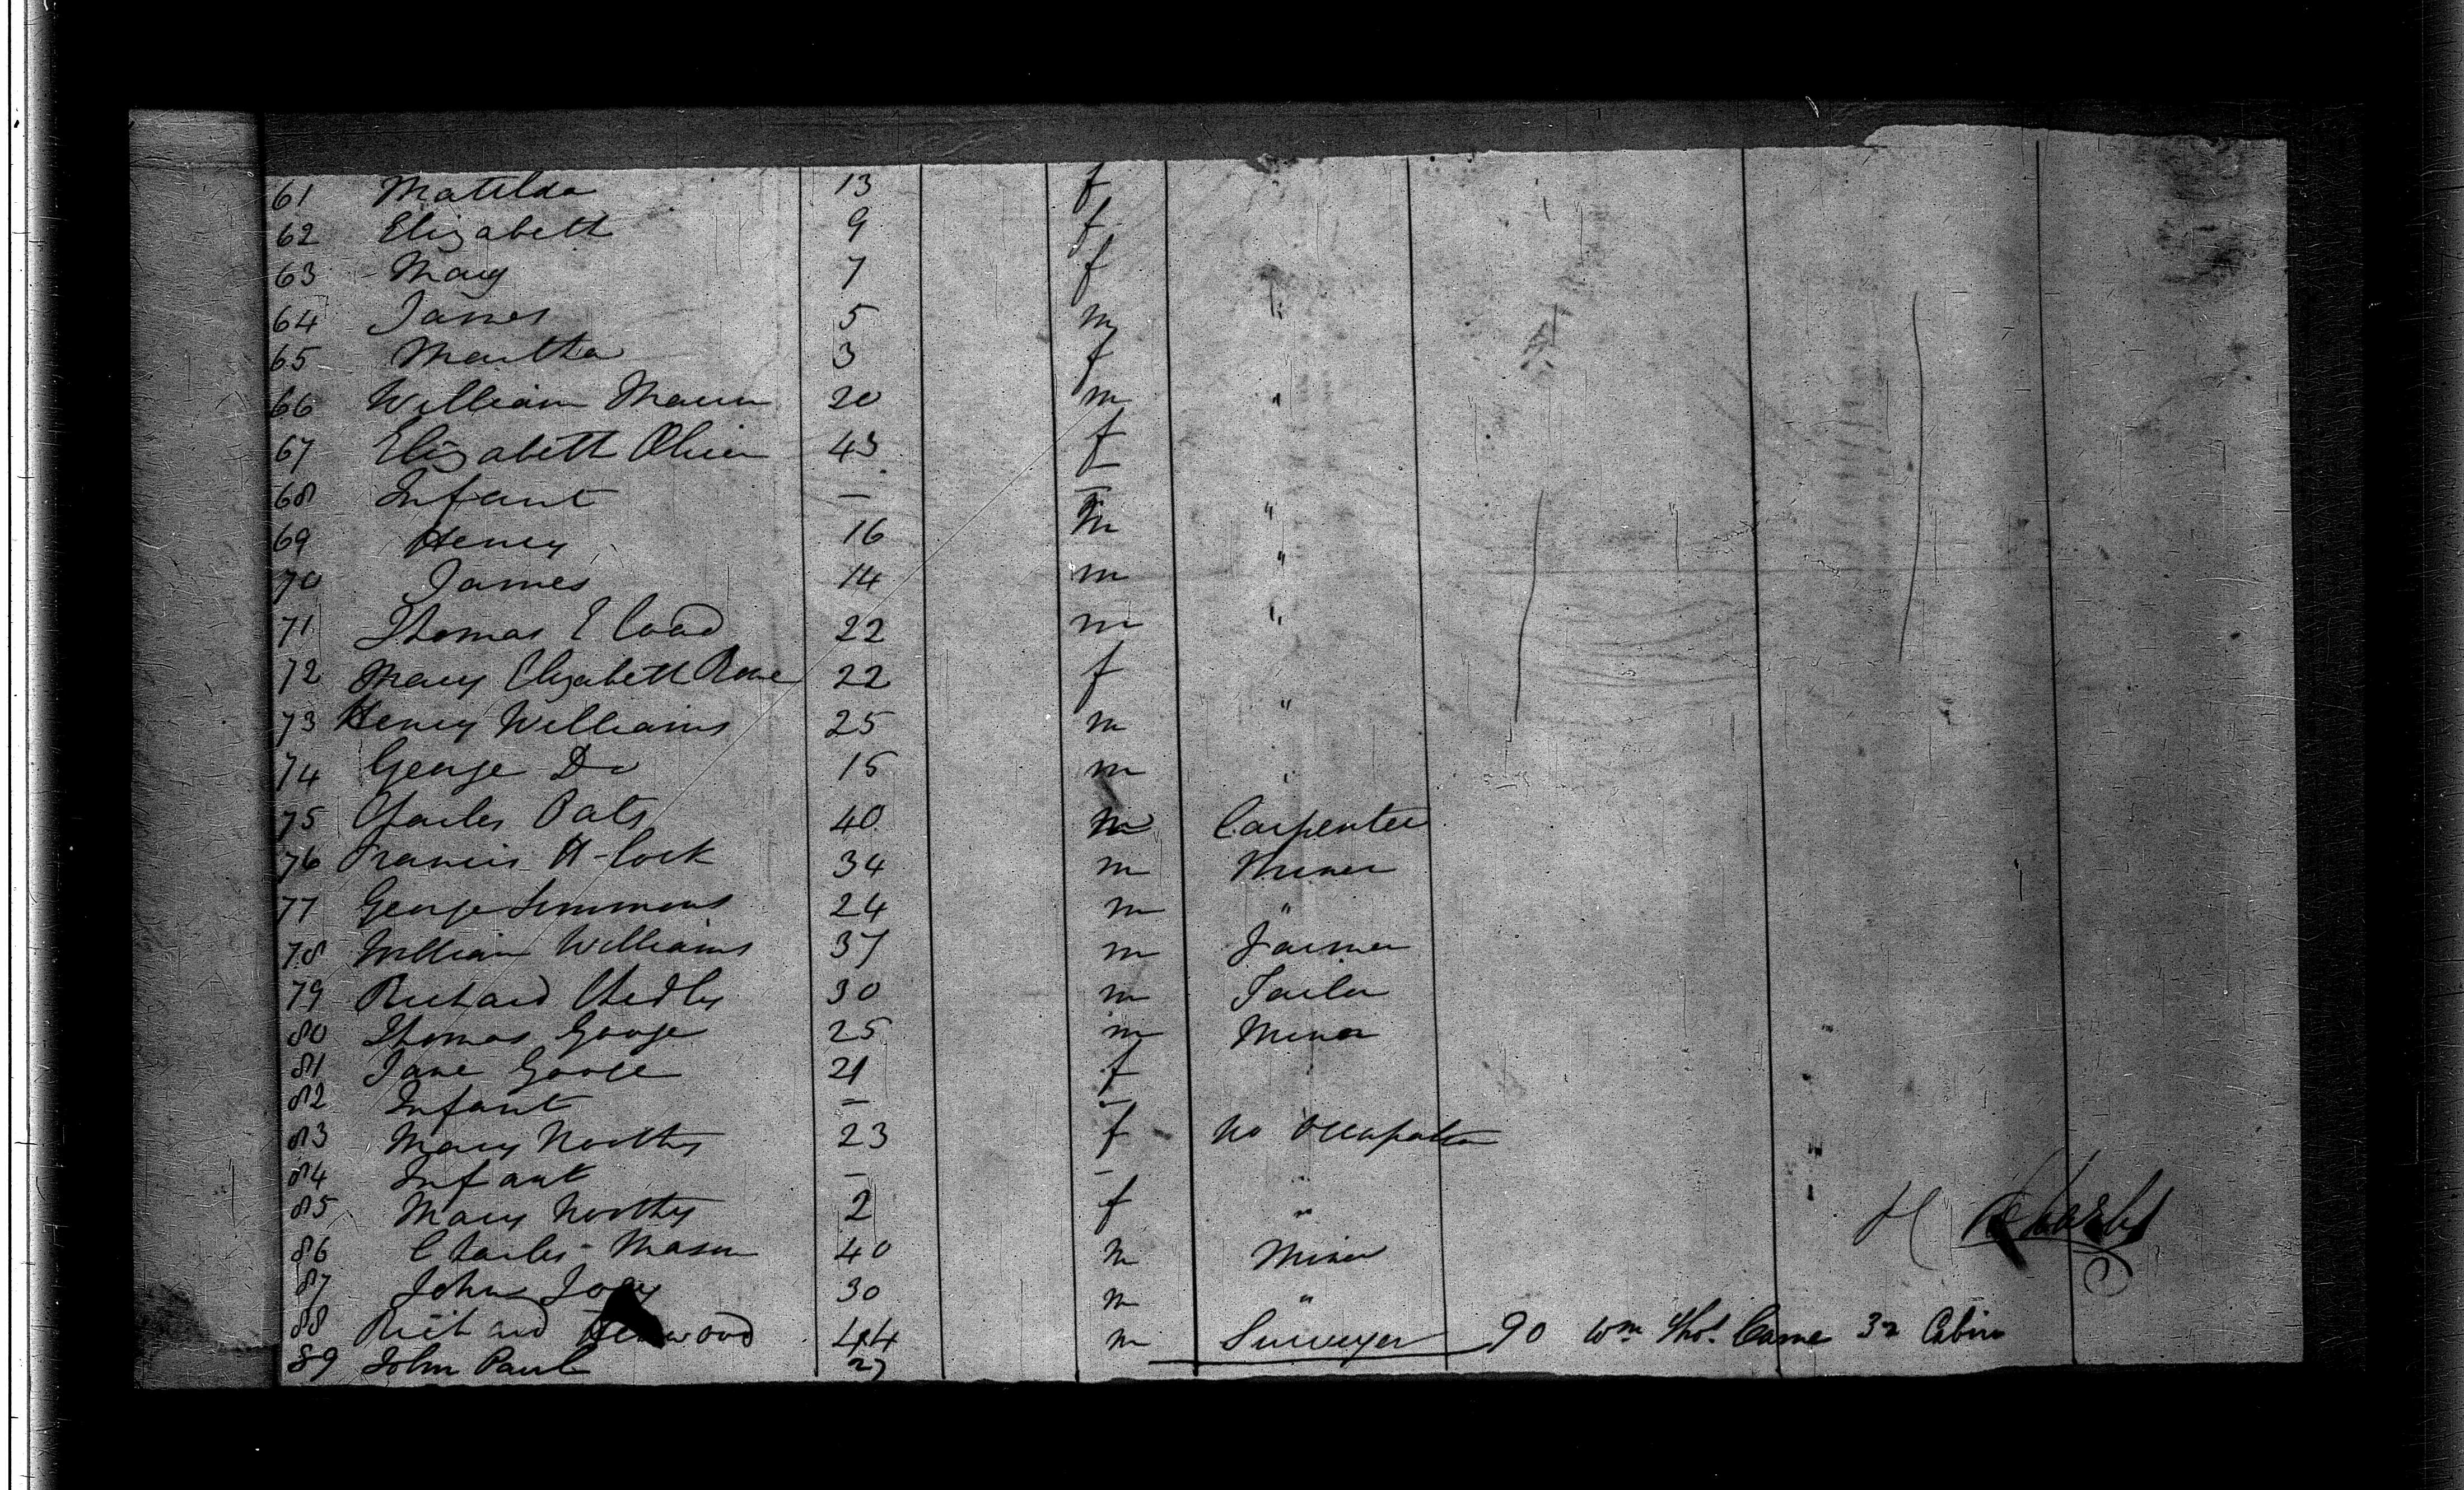 61 Matilda 13 f "
62 Elizabeth 9 f
63 Mary 7 f "
64 James 5 m "
65 Martha 3 f
66 William Mann 20 m "
67 Elizabeth Oliver 43 f
68 Infant — —
69 Henry 16 m "
70 James 14 m "
71 Thomas E Coad 22 m "
72 Mary Elizabeth Rowe 22 f
73 Henry Williams 25 m "
74 George Do 15 m "
75 Charles Oats 40 m Carpenter
76 Francis H Cock 34 m Miner
77 George Simmons 24 m "
78 William Williams 37 m Farmer
79 Richard 30 m Tailor
80 Thomas George 25 m Miner
81 Jane Goose 21 f
82 Infant — —
83 Mary Northy 23 f No Occupation
84 Infant — — "
85 Mary Northy 2 f "
86 Charles Mason 40 m Miner
87 John Joey 30 m "
88 Richard 44 m Surveyor 90 Wm Thos. Carne 32 Cabin
89 John Paul 27